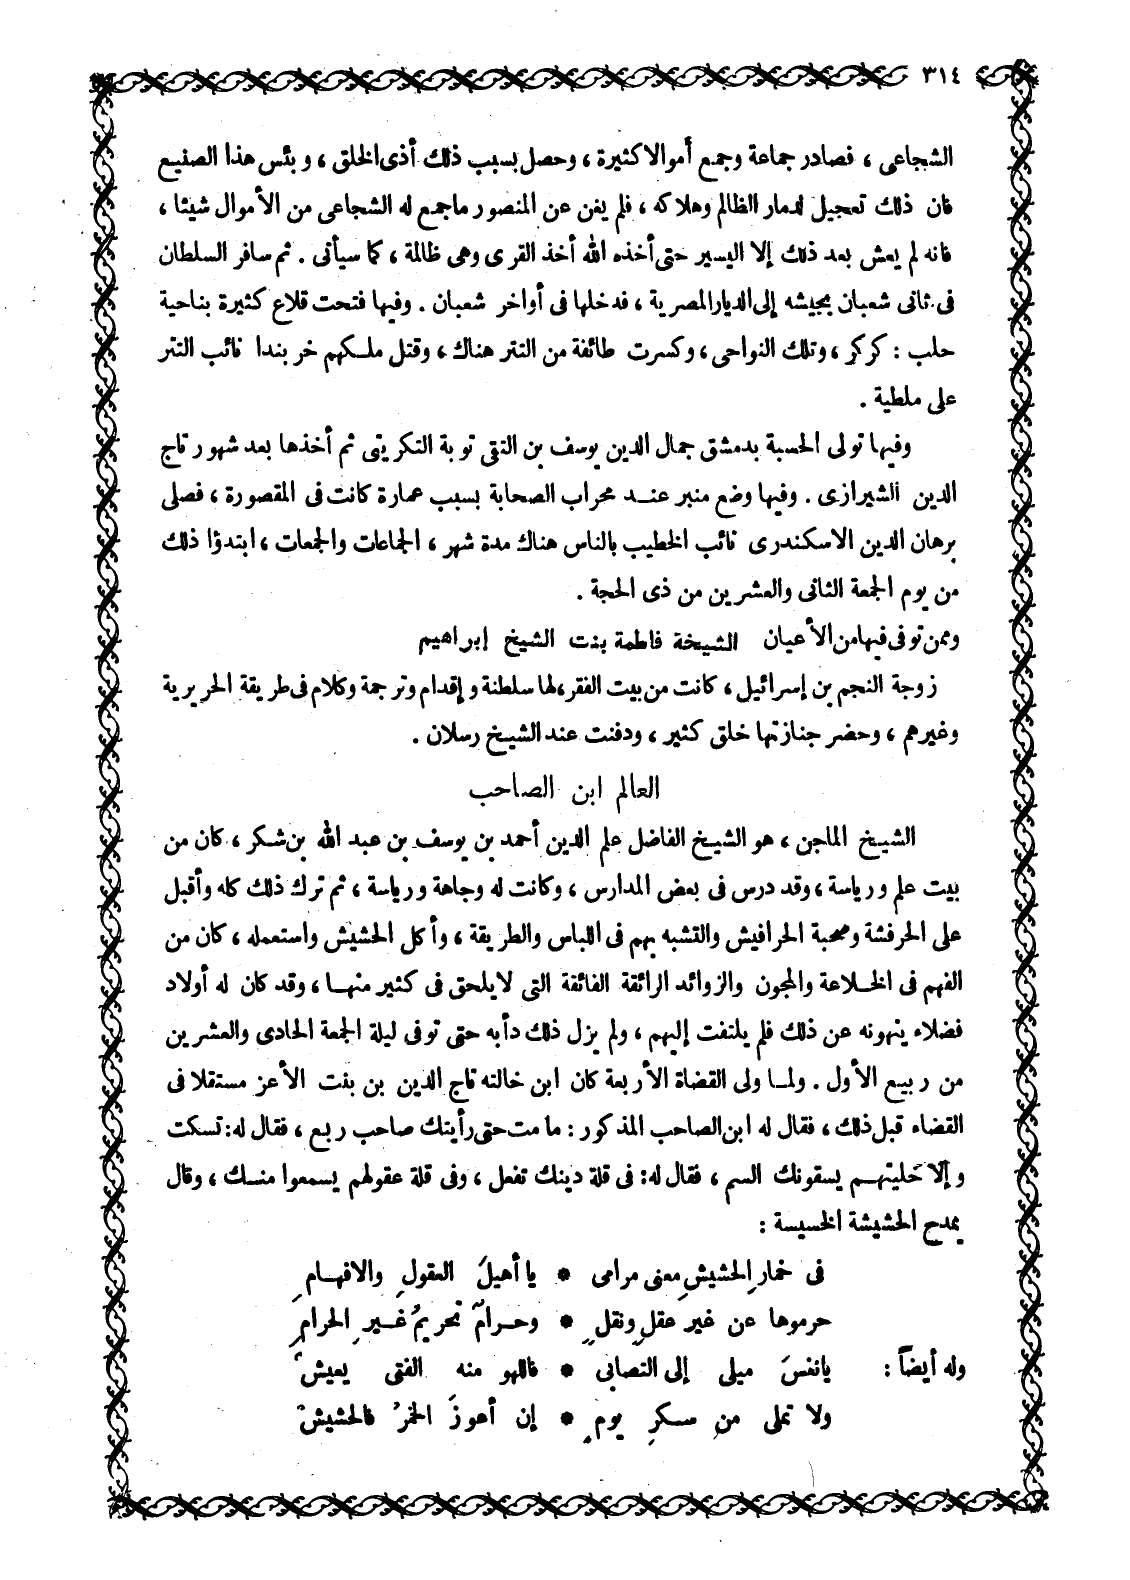 ٣١٤
الشجاعى ، فصادر جماعة وجمع أموالا كثيرة ، وحصل بسبب ذلك أذى الخلق ، و بئس هذا الصنيع
فان ذلك تعجيل لدمار الظالم وهلاكه ، فلم يغن عن المنصور ما جمع له الشجاعى من الأموال شيئا ،
فانه لم يعش بعد ذلك إلا اليسير حتى أخذه الله أخذ القرى وهى ظالمة ، كما سيأتى . ثم سافر السلطان
فى ثانى شعبان بجيشه إلى الديار المصرية ، فدخلها فى أواخر شعبان . وفيها فتحت قلاع كثيرة بناحية
حلب : كركر ، وتلك النواحى ، وكسرت طائفة من التتر هناك ، وقتل ملكهم خر بندا نائب التتر
على ملطية .
وفيها تولى الحسبة بدمشق جمال الدين يوسف بن التقى توبة التكريتى ثم أخذها بعد شهور تاج
الدين الشيرازى . وفيها وضع منبر عند محراب الصحابة بسبب عمارة كانت فى المقصورة ، فصلى
برهان الدين الاسكندرى نائب الخطيب بالناس هناك مدة شهر ، الجماعات والجمعات ، ابتدؤا ذلك
من يوم الجمعة الثانى والعشرين من ذى الحجة .
وممن توفى فيها من الأعيان الشيخة فاطمة بنت الشيخ إبراهيم
زوجة النجم بن إسرائيل ، كانت من بيت الفقر ، لها سلطنة و إقدام وترجمة وكلام فى طريقة الحريرية
وغيرهم ، وحضر جنازتها خلق كثير ، ودفنت عند الشيخ رسلان .
العالم ابن الصاحب
الشيخ الماجن ، هو الشيخ الفاضل علم الدين أحمد بن يوسف بن عبد الله بن شكر ، كان من
بيت علم ورياسة ، وقد درس فى بعض المدارس ، وكانت له وجاهة ورياسة ، ثم ترك ذلك كله وأقبل
على الحرفشة وصحبة الحرافيش والتشبه بهم فى اللباس والطريقة ، وأكل الحشيش واستعمله ، كان من
الفهم فى الخلاعة والمجون والزوائد الرائقة الفائقة التى لا يلحق فى كثير منها ، وقد كان له أولاد
فضلاء ينهونه عن ذلك فلم يلتفت إليهم ، ولم يزل ذلك دأبه حتى توفى ليلة الجمعة الحادى والعشرين
من ربيع الأول . ولما ولى القضاة الأربعة كان ابن خالته تاج الدين بن بنت الأعز مستقلا فى
القضاء قبل ذلك ، فقال له ابن الصاحب المذكور : ما مت حتى رأيتك صاحب ربع ، فقال له : تسكت
و إلا خليتهم يسقونك السم ، فقال له : فى قلة دينك تفعل ، وفى قلة عقولهم يسمعوا منك ، وقال
يمدح الحشيشة الخسيسة :
فى خمارِ الحشيشِ معنى مرامى * يا أهيلَ العقولِ والافهامِ
حرموها عن غير عقلٍ ونقلٍ * وحرامٌ تحريمُ غيرِ الحرامِ
وله أيضاً : يا نفسَ ميلى إلى التصابى * فاللهو منه الفتى يعيش
ولا تملى من سكرِ يومٍ * إن أعوزَ الخمرُ فالحشيش